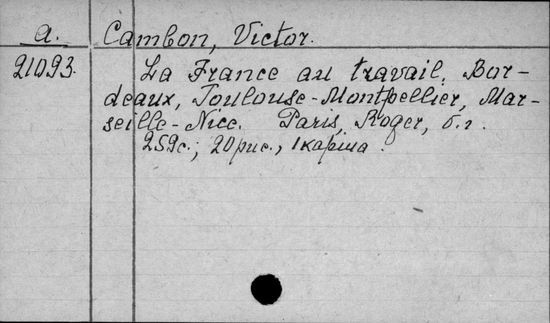 a. Cambon, Victor.
21093. La France au travail, Bor-
deaux, Toulouse-Montpellier, Mar-
seille-Nice. Paris, Roger, б.г.
259с.; 20рис., 1карта.